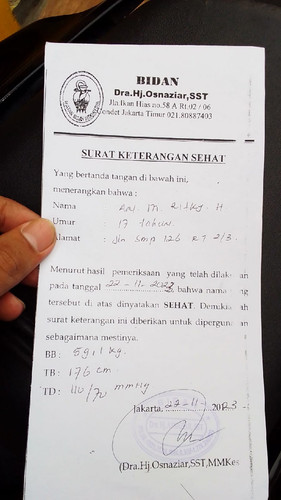 BIDAN
Dra.Hj.Osnaziar,SST
Jla.Ikan Hias no.58 A Rt.02 / 06
Condet Jakarta Timur 021.80887493
SURAT KETERANGAN SEHAT
Yang bertanda tangan di bawah ini,
menerangkan bahwa :
Nama : M. Rizky. H
Umur : 17 tahun
Alamat : Jln Smp 126 RT 2/3.
Menurut hasil pemeriksaan yang telah dilakukan
pada tanggal 22-11-2023, bahwa nama
tersebut di atas dinyatakan SEHAT. Demikian
surat keterangan ini diberikan untuk dipergunakan
sebagaimana mestinya.
BB : 59,1 kg
TB : 176 cm
TD : 110/70 mmHg
Jakarta, 22-11-2023
(Dra.Hj.Osnaziar,SST,MMKes